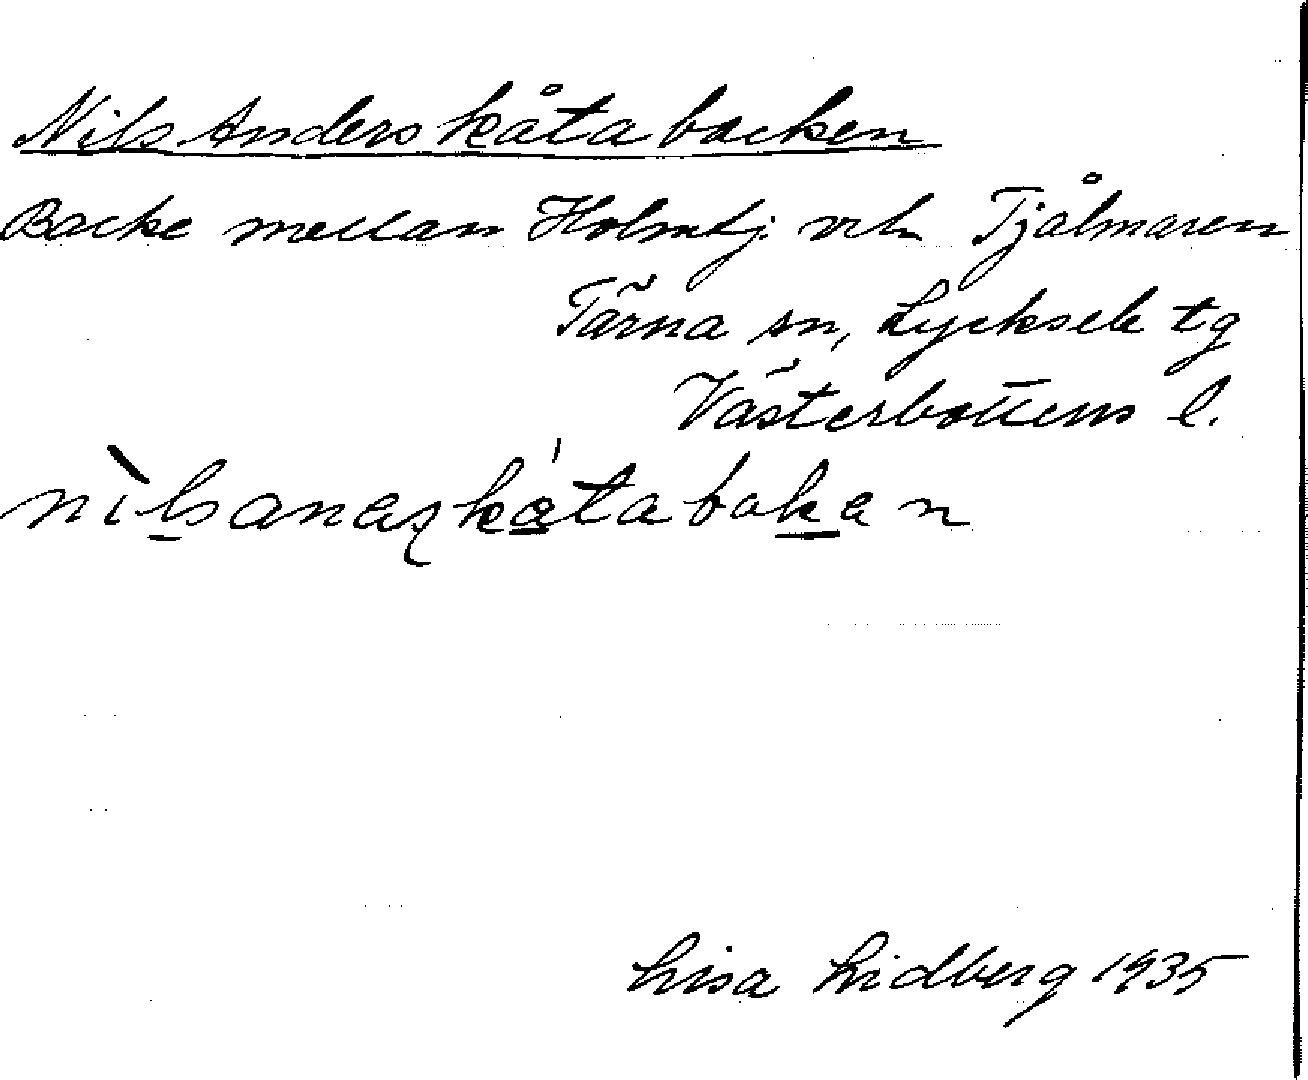 Nils Anders kåtabacken
Backe mellan Holmtj. och Tjålmaren
Tärna sn, Lycksele tg
Västerbottens l.
Lisa Lidberg 1935